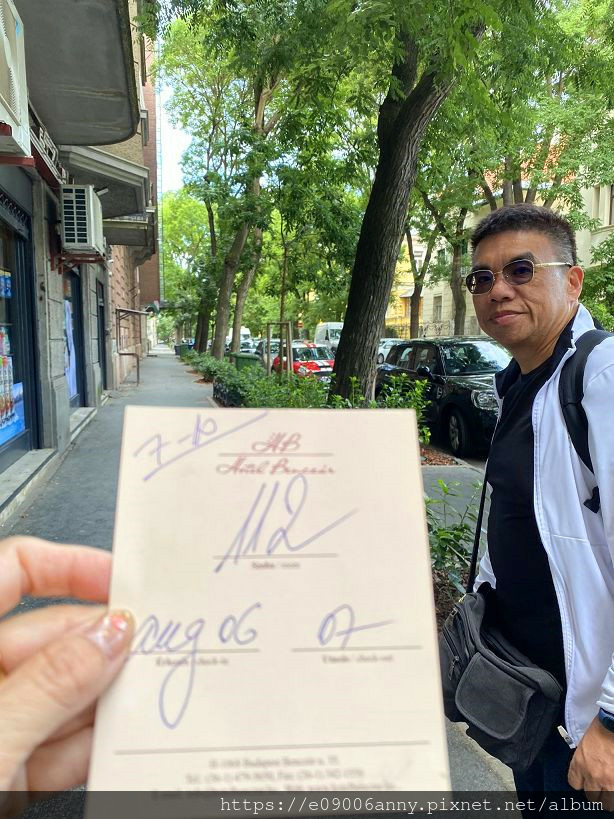 7-10
HB
Hotel Benczúr
112
Szoba / room
aug 06 07
Érkezés / check-in Utazás / check-out
H-1068 Budapest Benczúr u. 35.
https://e09006anny.pixnet.net/album